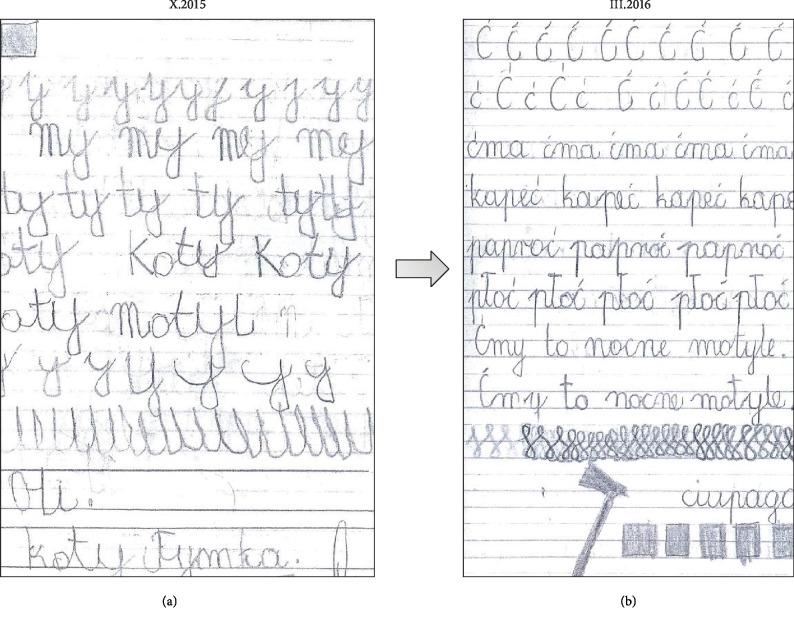 X.2015
y y y y y y y y y y
my my my my
ty ty ty ty tyty
oty Koty Koty
oty motyl
y y y y y y y y
Oli.
koty Tymka.
(a)
III.2016
Ć Ć Ć Ć Ć Ć Ć Ć Ć Ć
ć Ć ć Ć ć Ć ć Ć Ć ć Ć ć
ćma ćma ćma ćma ćma
kapeć kapeć kapeć kape
paproć paproć paproć
płoć płoć płoć płoć płoć
Ćmy to nocne motyle.
Ćmy to nocne motyle.
ciupaga
(b)